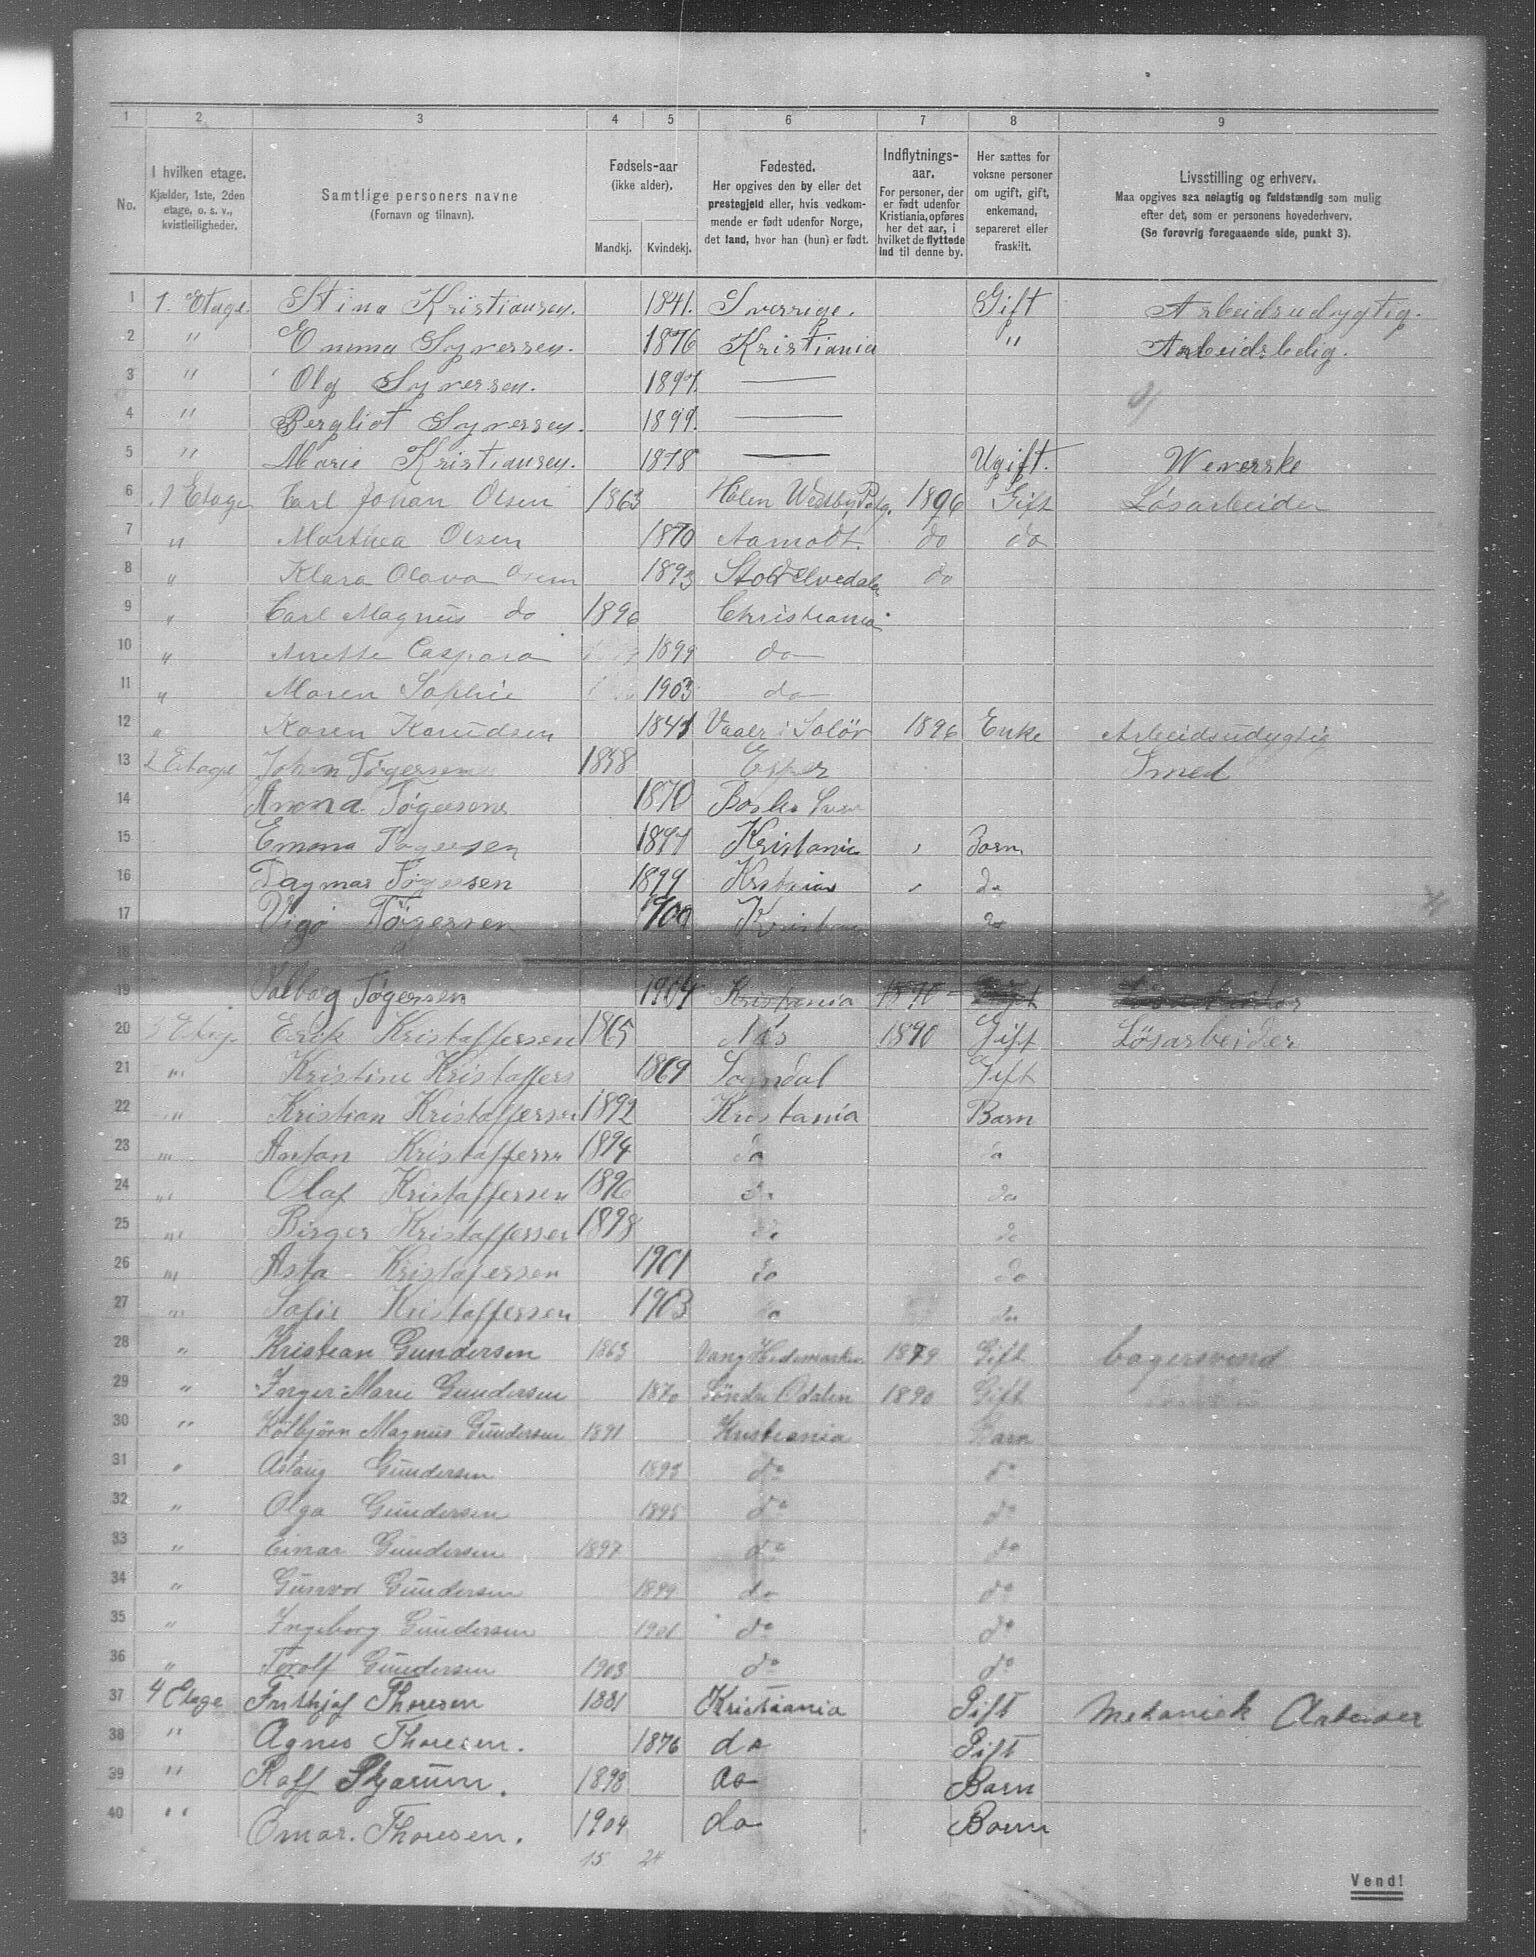 1 2 3 4 5 6 7 8 9
No.
I hvilken etage.
Kjælder, 1ste, 2den
etage, o. s. v.,
kvistleiligheder.
Samtlige personers navne
(Fornavn og tilnavn).
Fødsels-aar
(ikke alder).
Mandkj. Kvindekj.
Fødested.
Her opgives den by eller det
prestegjeld eller, hvis vedkom-
mende er født udenfor Norge,
det land, hvor han (hun) er født.
Indflytnings-
aar.
For personer, der
er født udenfor
Kristiania, opføres
her det aar, i
hvilket de flyttede
ind til denne by.
Her sættes for
voksne personer
om ugift, gift,
enkemand,
separeret eller
fraskilt.
Livsstilling og erhverv.
Maa opgives saa nøiagtig og fuldstændig som mulig
efter det, som er personens hovederhverv.
(Se forøvrig foregaaende side, punkt 3).
1 1. Etage Stina Kristiansen. 1841. Sverrige. Gift Arbeidsudygtig.
2 " Emma Syversen. 1876 Kristiania " Arbeidsledig.
3 " Olg Syversen. 1897. —
4 " Bergliot Syversen. 1899. —
5 " Marie Kristiansen. 1878 — Ugift. Weverske
6 1 Etage Carl Johan Olsen 1863 Hølen 1896 Gift Løsarbeider
7 " Marthea Olsen 1870 Aamodt. do do
8 " Klara Olava 1893 do
9 " Carl Magnus do 1896 Christiania
10 " Anette Caspara 1899 do
11 " Maren Sophie 1903 do
12 " Karen Knudsen 1841 Vaaler i Solør 1896 Enke Arbeidsudygtig
13 2 Etage Johan Tøgersen 1858 Smed
14 Anna Tøgersens 1870
15 Emma Tøgersen 1897 Kristania Barn
16 Dagmar Tøgersen 1899 do
17 Vigo Tøgersen 1900 do
18
19 Valborg Tøgersen 1904 Kristiania 1890 Gift
20 3 Etag. Erik Kristaffersen 1865 Næs 1890 Gift Løsarbeider
21 " Kristine Kristaffers 1869 Sogndal Gift
22 " Kristian Kristaffersen 1892 Kristania Barn
23 " Anton Kristaffersn 1894 do do
24 " Olaf Kristaffersen 1896 do do
25 " Birger Kristaffersen 1898 do do
26 " Asta Kristafersen 1901 do do
27 " Sofie Kristaffersen 1903 do do
28 " Kristian Gundersen 1863 Vang Hedemarken 1879 Gift
29 " Inger Marie Gundersen 1870 Søndre Odalen 1890 Gift
30 " Kolbjørn Magnus Gundersen 1891 Kristiania Barn
31 " Aslaug Gundersen 1893 do do
32 " Olga Gundersen 1895 do do
33 " Einar Gundersen 1897 do do
34 " Gunvor Gundersen 1899 do do
35 " Ingeborg Gundersen 1901 do do
36 " Torolf Gundersen 1903 do do
37 4 Etage Frithjof Thoresen 1881 Kristiania Gift Mekanisk Arbeider
38 " Agnes Thoresen. 1876 do Gift
39 " Rolf 1898 do Barn
40 " Omar. Thoresen. 1904 do Barn
15 24
Vend!